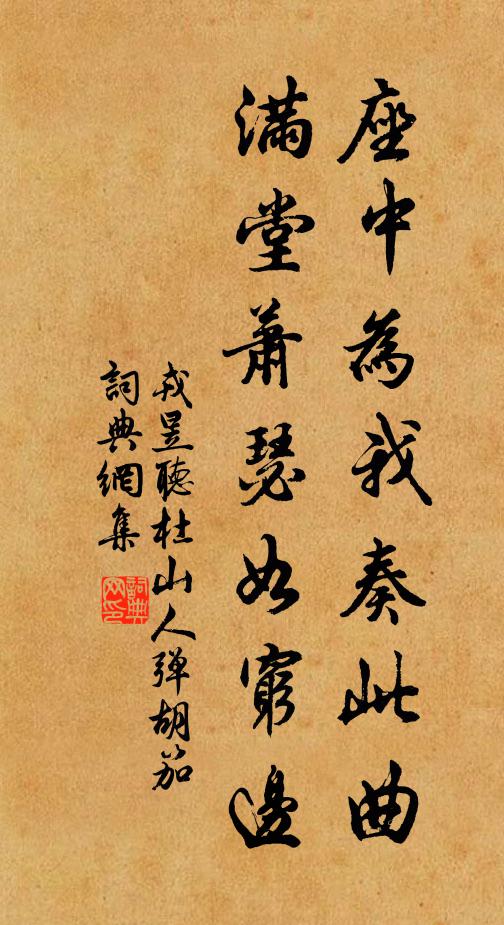 座中為我奏此曲
滿堂蕭瑟如窮邊
戎昱聽杜山人彈胡笳
詞典網集
詞典
网印